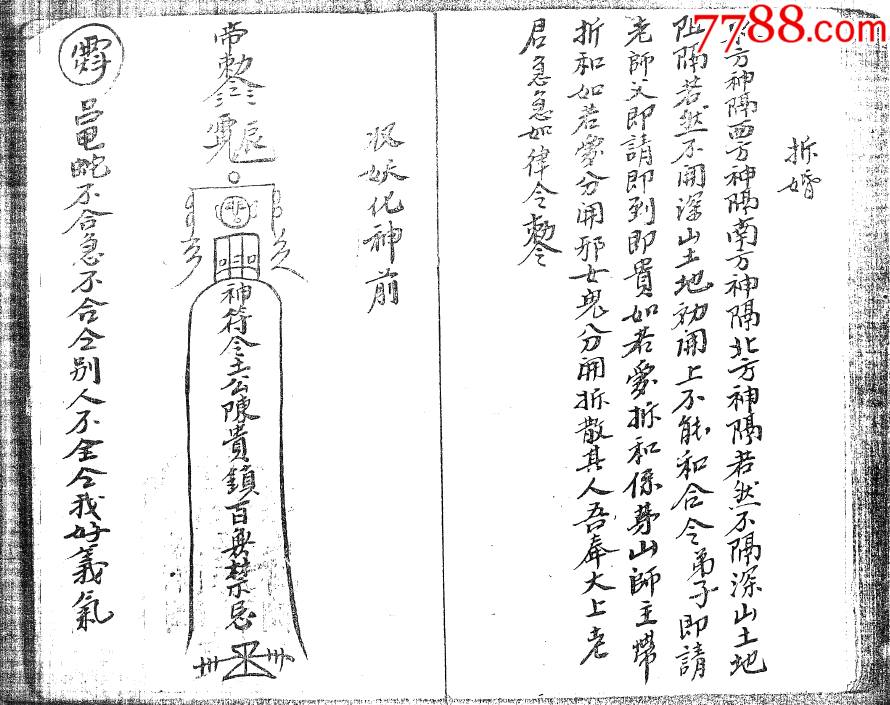 7788.com
拆婚
方神隔西方神隔南方神隔北方神隔若然不隔深山土地
阻隔若然不開深山土地効開上不能和合令弟子即請
老師父即請即到即貴如若要拆和係茅山師主
拆和如若要分開邪女鬼分開拆散其人吾奉大上老
君急急如律令勅令
妖化神前
帝勅令
神符令土公陳貴鎖百無禁忌
蛇不合急不合仝别人不仝仝我好義氣